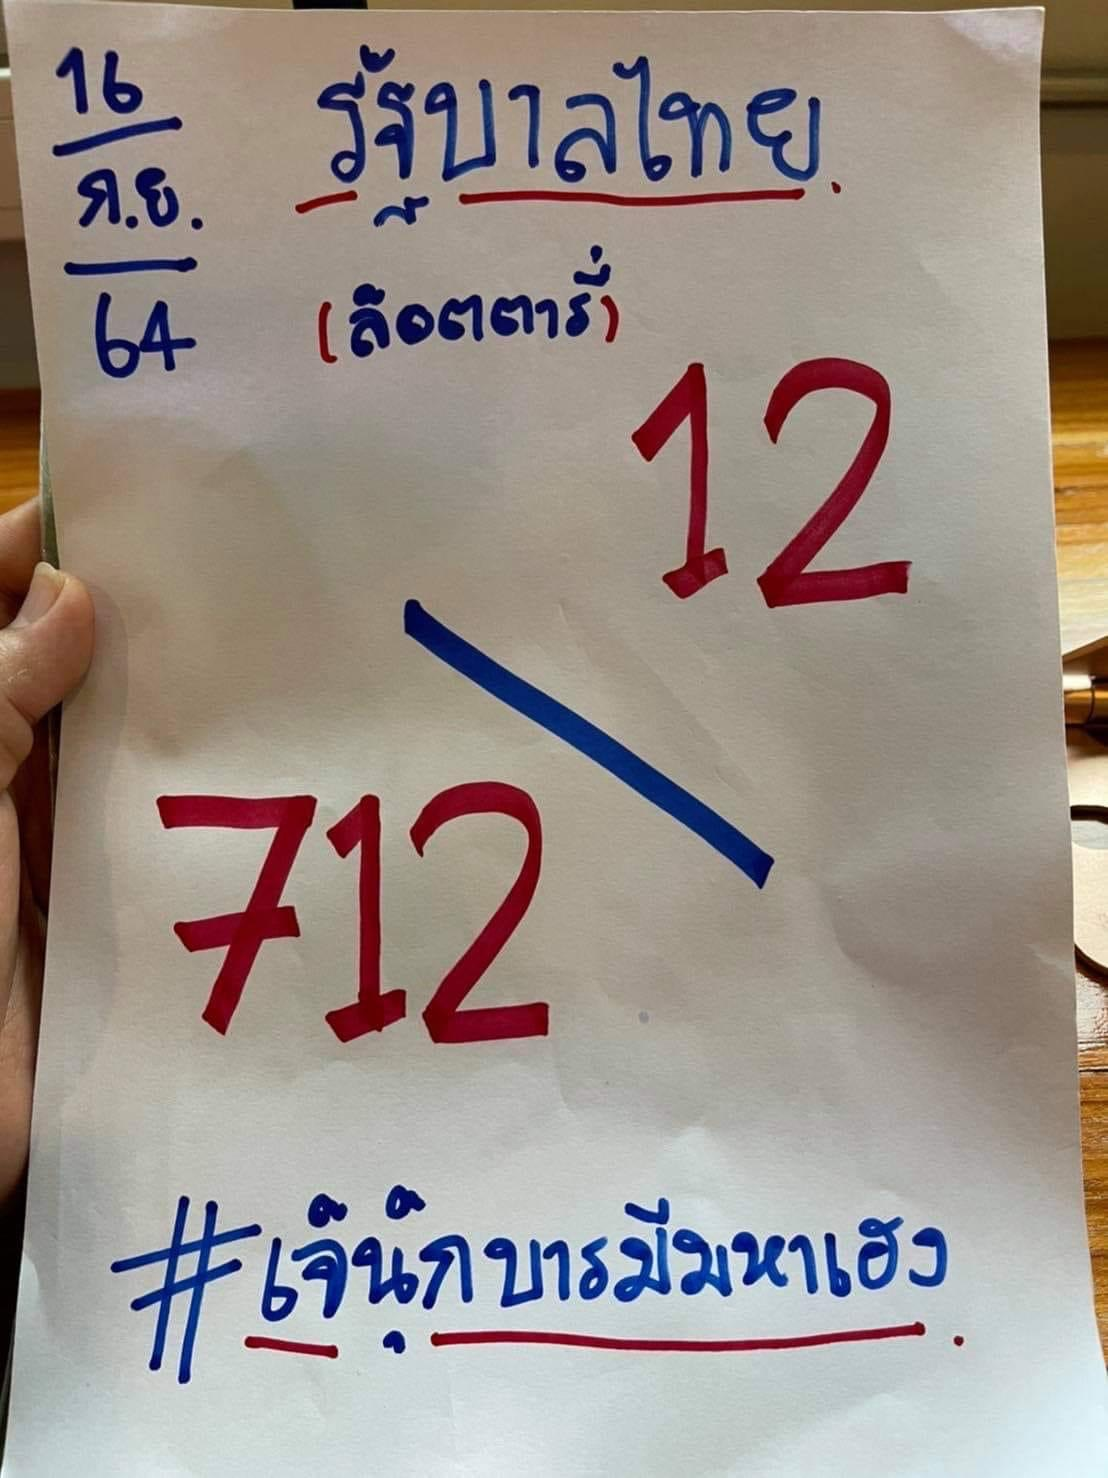 16
ก.ย.
64
รัฐบาลไทย.
(ล๊อตตารี่)
12
712
#เจ๊นุ๊กบารมีมหาเฮง.